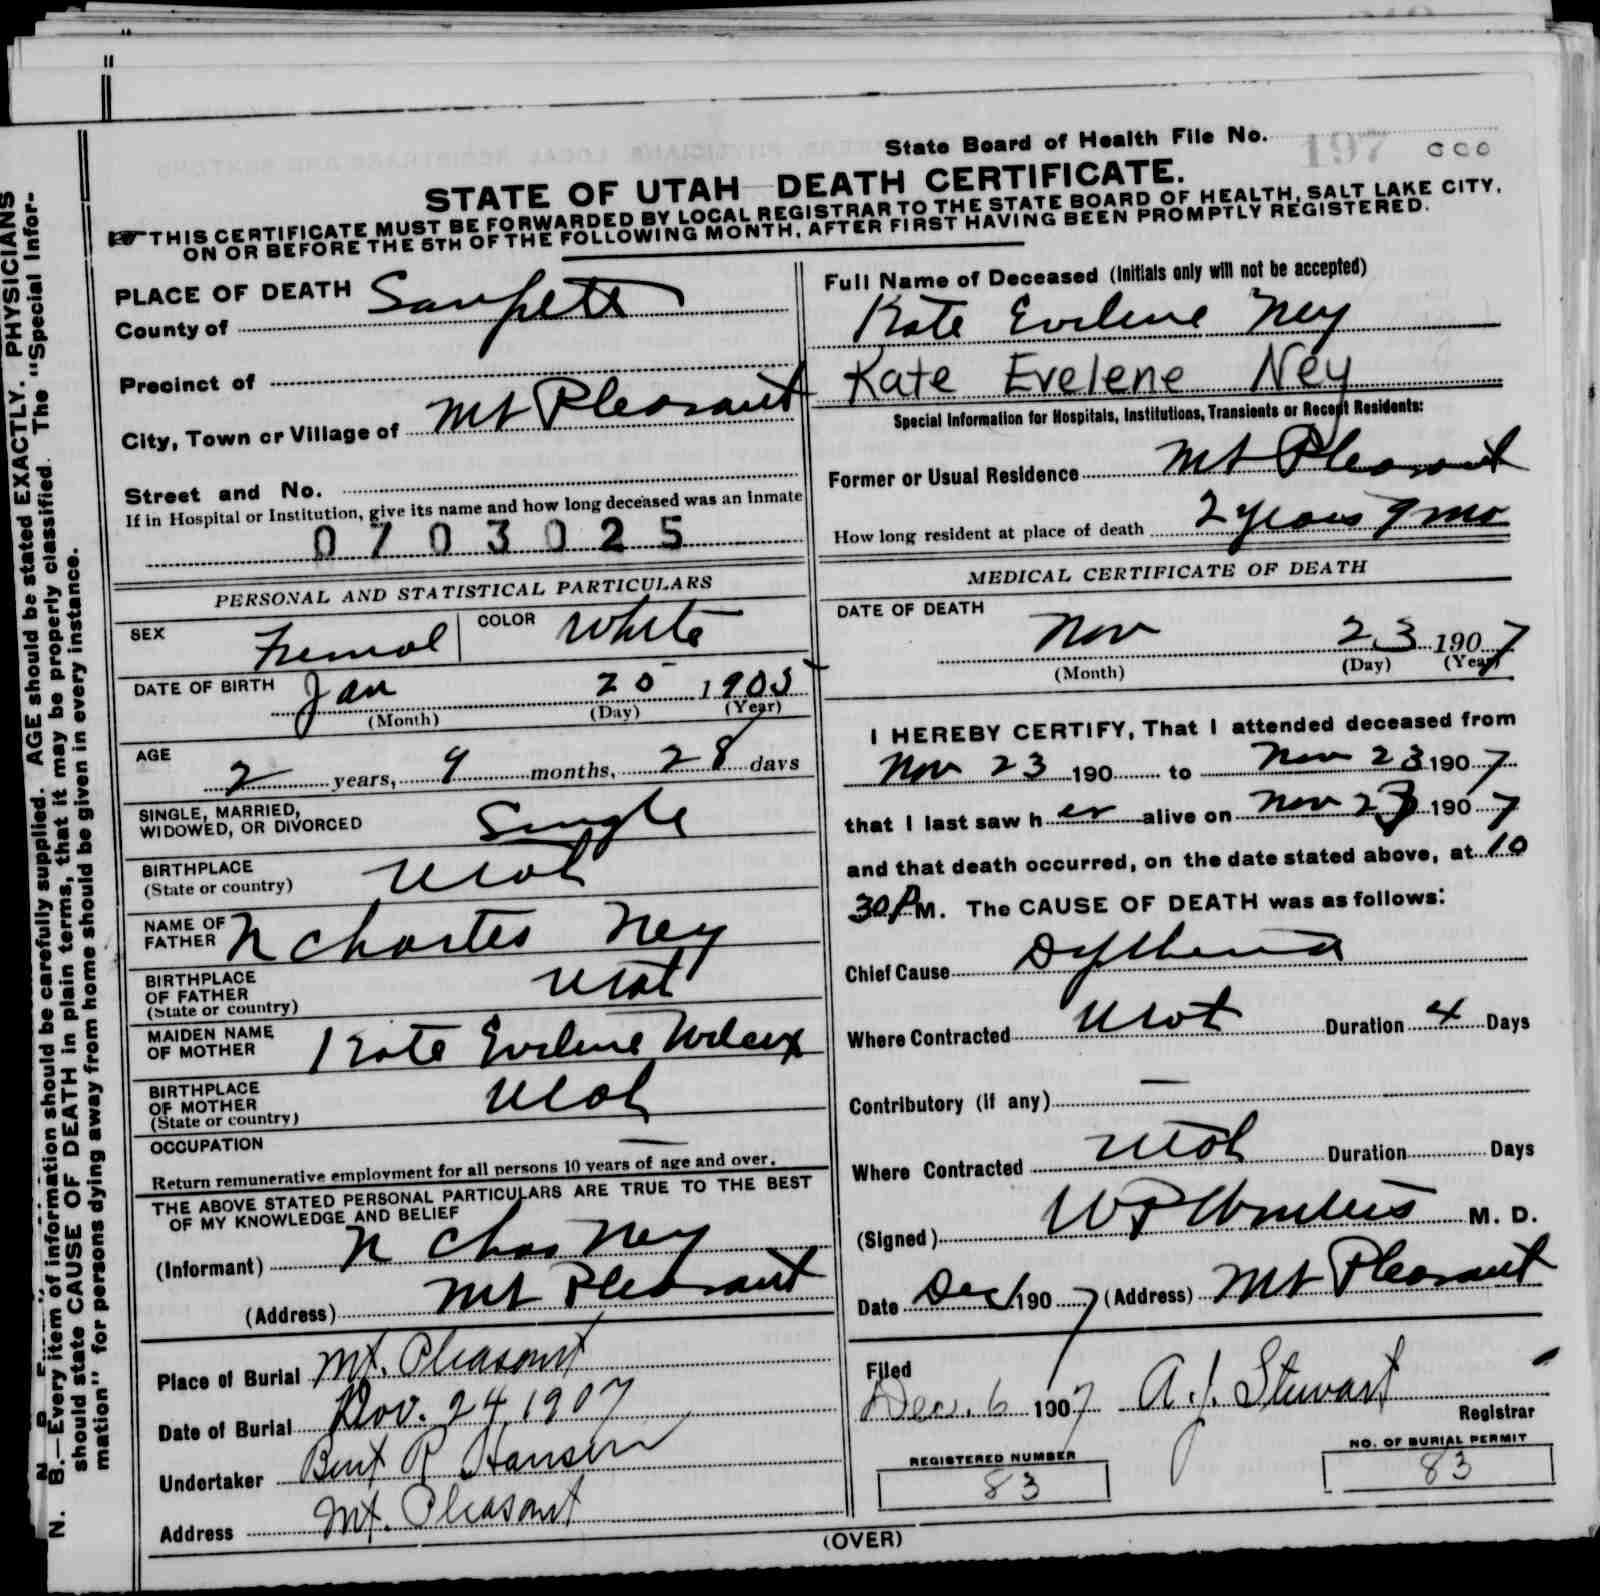 State Board of Health File No. 197 000
STATE OF UTAH DEATH CERTIFICATE.
THIS CERTIFICATE MUST BE FORWARDED BY LOCAL REGISTRAR TO THE STATE BOARD OF HEALTH, SALT LAKE CITY,
ON OR BEFORE THE 5TH OF THE FOLLOWING MONTH, AFTER FIRST HAVING BEEN PROMPTLY REGISTERED.
PLACE OF DEATH
County of Sanpete
Precinct of
City, Town or Village of Mt Pleasant
Street and No.
If in Hospital or Institution, give its name and how long deceased was an inmate
0703025
PERSONAL AND STATISTICAL PARTICULARS
SEX Femal COLOR White
DATE OF BIRTH Jan 25 1905
(Month) (Day) (Year)
AGE 2 years, 9 months, 28 days
SINGLE, MARRIED,
WIDOWED, OR DIVORCED Single
BIRTHPLACE
(State or country) Utah
NAME OF
FATHER N Charles Ney
BIRTHPLACE
OF FATHER
(State or country) Utah
MAIDEN NAME
OF MOTHER Kate Evelene Wilcox
BIRTHPLACE
OF MOTHER
(State or country) Utah
OCCUPATION —
Return remunerative employment for all persons 10 years of age and over.
THE ABOVE STATED PERSONAL PARTICULARS ARE TRUE TO THE BEST
OF MY KNOWLEDGE AND BELIEF
(Informant) N Chas Ney
(Address) Mt Pleasant
Place of Burial Mt. Pleasant
Date of Burial Nov. 24, 1907
Undertaker Bent R Hansen
Address Mt. Pleasant
Full Name of Deceased (Initials only will not be accepted)
Kate Evelene Ney
Kate Evelene Ney
Special Information for Hospitals, Institutions, Transients or Recent Residents:
Former or Usual Residence Mt Pleasant
How long resident at place of death 2 years 9 mo
MEDICAL CERTIFICATE OF DEATH
DATE OF DEATH
Nov 23 1907
(Month) (Day) (Year)
I HEREBY CERTIFY, That I attended deceased from
Nov 23 190 to Nov 23 1907
that I last saw her alive on Nov 23 1907
and that death occurred, on the date stated above, at 10
30 P M. The CAUSE OF DEATH was as follows:
Chief Cause Dyptheria
Where Contracted Utah Duration 4 Days
Contributory (if any) —
Where Contracted Utah Duration Days
(Signed) M. D.
Date Dec 1 1907 (Address) Mt Pleasant
Filed
Dec. 6 1907 A. J. Stewart
Registrar
REGISTERED NUMBER
83
NO. OF BURIAL PERMIT
83
(OVER)
N. B.—Every item of information should be carefully supplied. AGE should be stated EXACTLY. PHYSICIANS
should state CAUSE OF DEATH in plain terms, that it may be properly classified. The "Special Infor-
mation" for persons dying away from home should be given in every instance.